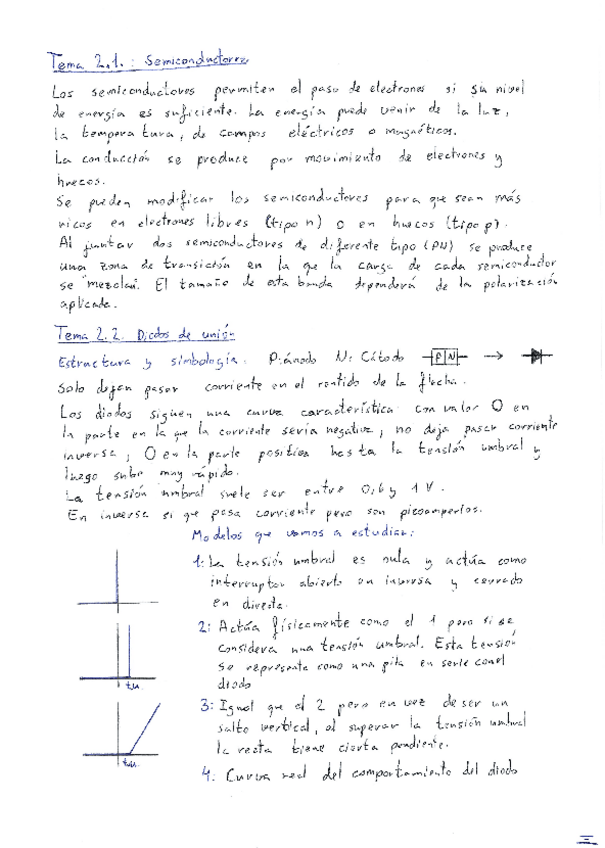 Tema 2.1.: Semiconductores
Los semiconductores permiten el paso de electrones si su nivel
de energía es suficiente. La energía puede venir de la luz,
la temperatura, de campos eléctricos o magnéticos.
La conducción se produce por movimiento de electrones y
huecos.
Se pueden modificar los semiconductores para que sean más
ricos en electrones libres (tipo n) o en huecos (tipo p).
Al juntar dos semiconductores de diferente tipo (PN) se produce
una zona de transición en la que la carga de cada semiconductor
se "mezclan". El tamaño de esta banda dependerá de la polarización
aplicada.
Tema 2.2. Diodos de unión
Estructura y simbología. P: ánodo N: Cátodo P N →
Solo dejan pasar corriente en el sentido de la flecha.
Los diodos siguen una curva característica con valor 0 en
la parte en la que la corriente sería negativa, no deja pasar corriente
inversa; 0 en la parte positiva hasta la tensión umbral y
luego sube muy rápido.
La tensión umbral suele ser entre 0,6 y 1 V.
En inversa si que pasa corriente pero son picoamperios.
Modelos que vamos a estudiar:
1: La tensión umbral es nula y actúa como
interruptor abierto en inversa y cerrado
en directa.
2: Actúa físicamente como el 1 pero si se
considera una tensión umbral. Esta tensión
se representa como una pila en serie con el
diodo
t.u.
3: Igual que el 2 pero en vez de ser un
salto vertical, al superar la tensión umbral
la recta tiene cierta pendiente.
t.u.
4: Curva real del comportamiento del diodo